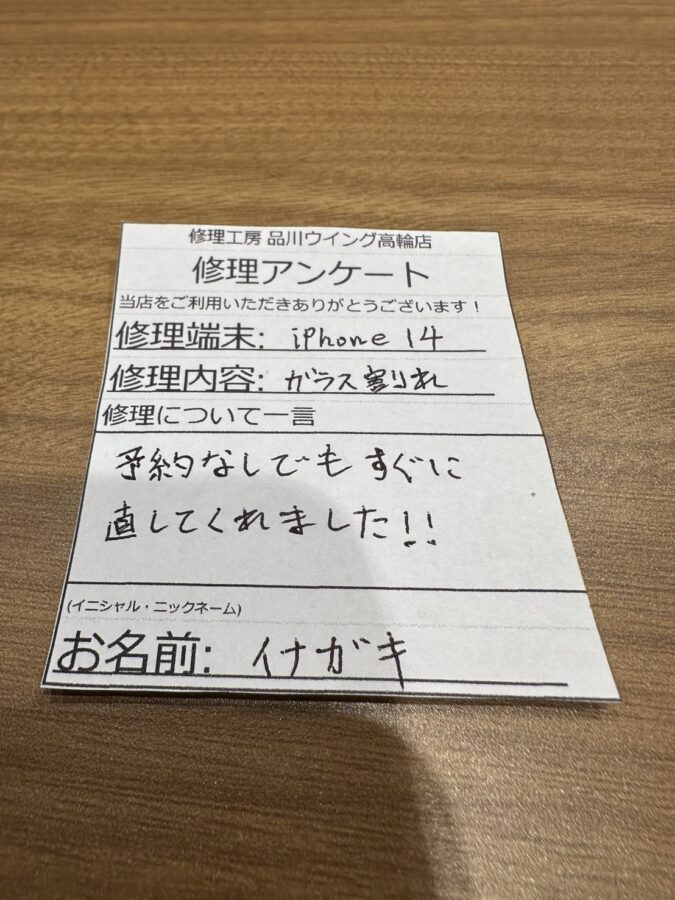 修理工房 品川ウイング高輪店
修理アンケート
当店をご利用いただきありがとうございます！
修理端末: iPhone 14
修理内容: ガラス割れ
修理について一言
予約なしでもすぐに
直してくれました!!
(イニシャル・ニックネーム)
お名前: イナガキ